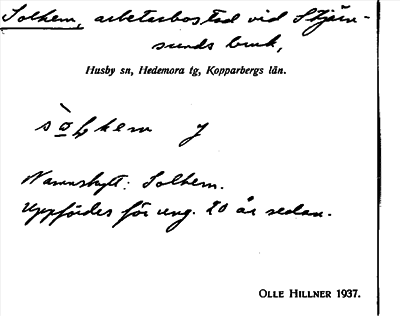 Solhem, arbetarbostad vid Stjärn-
sunds bruk,
Husby sn, Hedemora tg, Kopparbergs län.
Namnskylt: Solhem.
Uppfördes för ung. 20 år sedan.
OLLE HILLNER 1937.